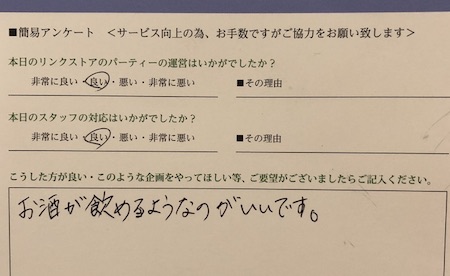 ■簡易アンケート ＜サービス向上の為、お手数ですがご協力をお願い致します＞
本日のリンクストアのパーティーの運営はいかがでしたか？
非常に良い・良い・悪い・非常に悪い ■その理由
本日のスタッフの対応はいかがでしたか？
非常に良い・良い・悪い・非常に悪い ■その理由
こうした方が良い・このような企画をやってほしい等、ご要望がございましたらご記入ください。
お酒が飲めるようなのがいいです。